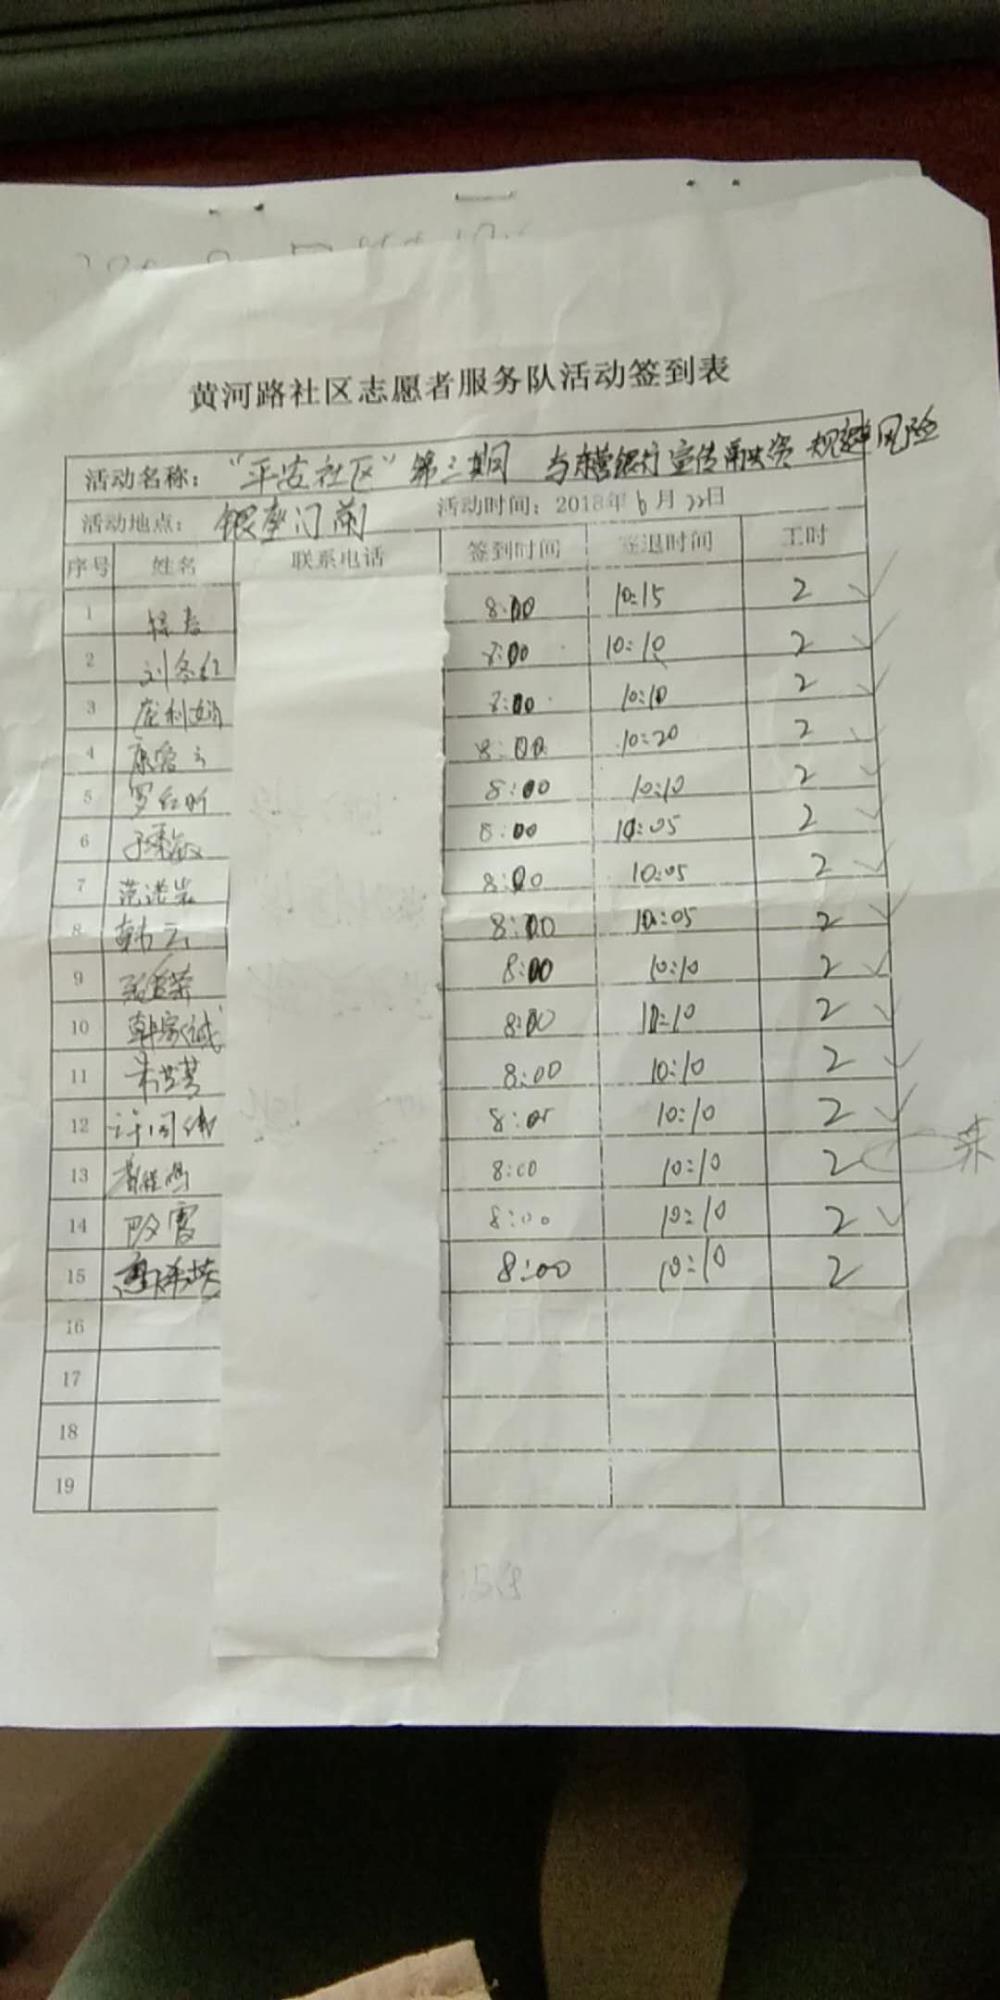 黄河路社区志愿者服务队活动签到表
活动名称： “平安社区”第三期 与东营银行宣传融资 规避风险
活动地点： 银座门前 活动时间：2018年6月22日
序号 姓名 联系电话 签到时间 签退时间 工时
1 8:00 10:15 2 ✓
2 刘冬红 8:00 10:10 2 ✓
3 庞利娟 8:00 10:10 2 ✓
4 康爱云 8:00 10:20 2 ✓
5 罗红昕 8:00 10:10 2 ✓
6 8:00 10:05 2 ✓
7 范洪岩 8:00 10:05 2 ✓
8 韩云 8:00 10:05 2 ✓
9 8:00 10:10 2 ✓
10 韩家诚 8:00 10:10 2 ✓
11 8:00 10:10 2 ✓
12 8:05 10:10 2 ✓
13 8:00 10:10 2
14 段霞 8:00 10:10 2 ✓
15 8:00 10:10 2
16
17
18
19